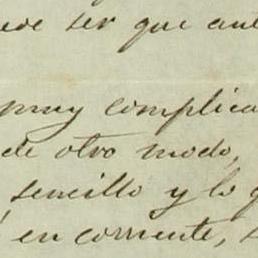 ser que
muy complica
de otro modo,
sencillo y lo
en corriente,